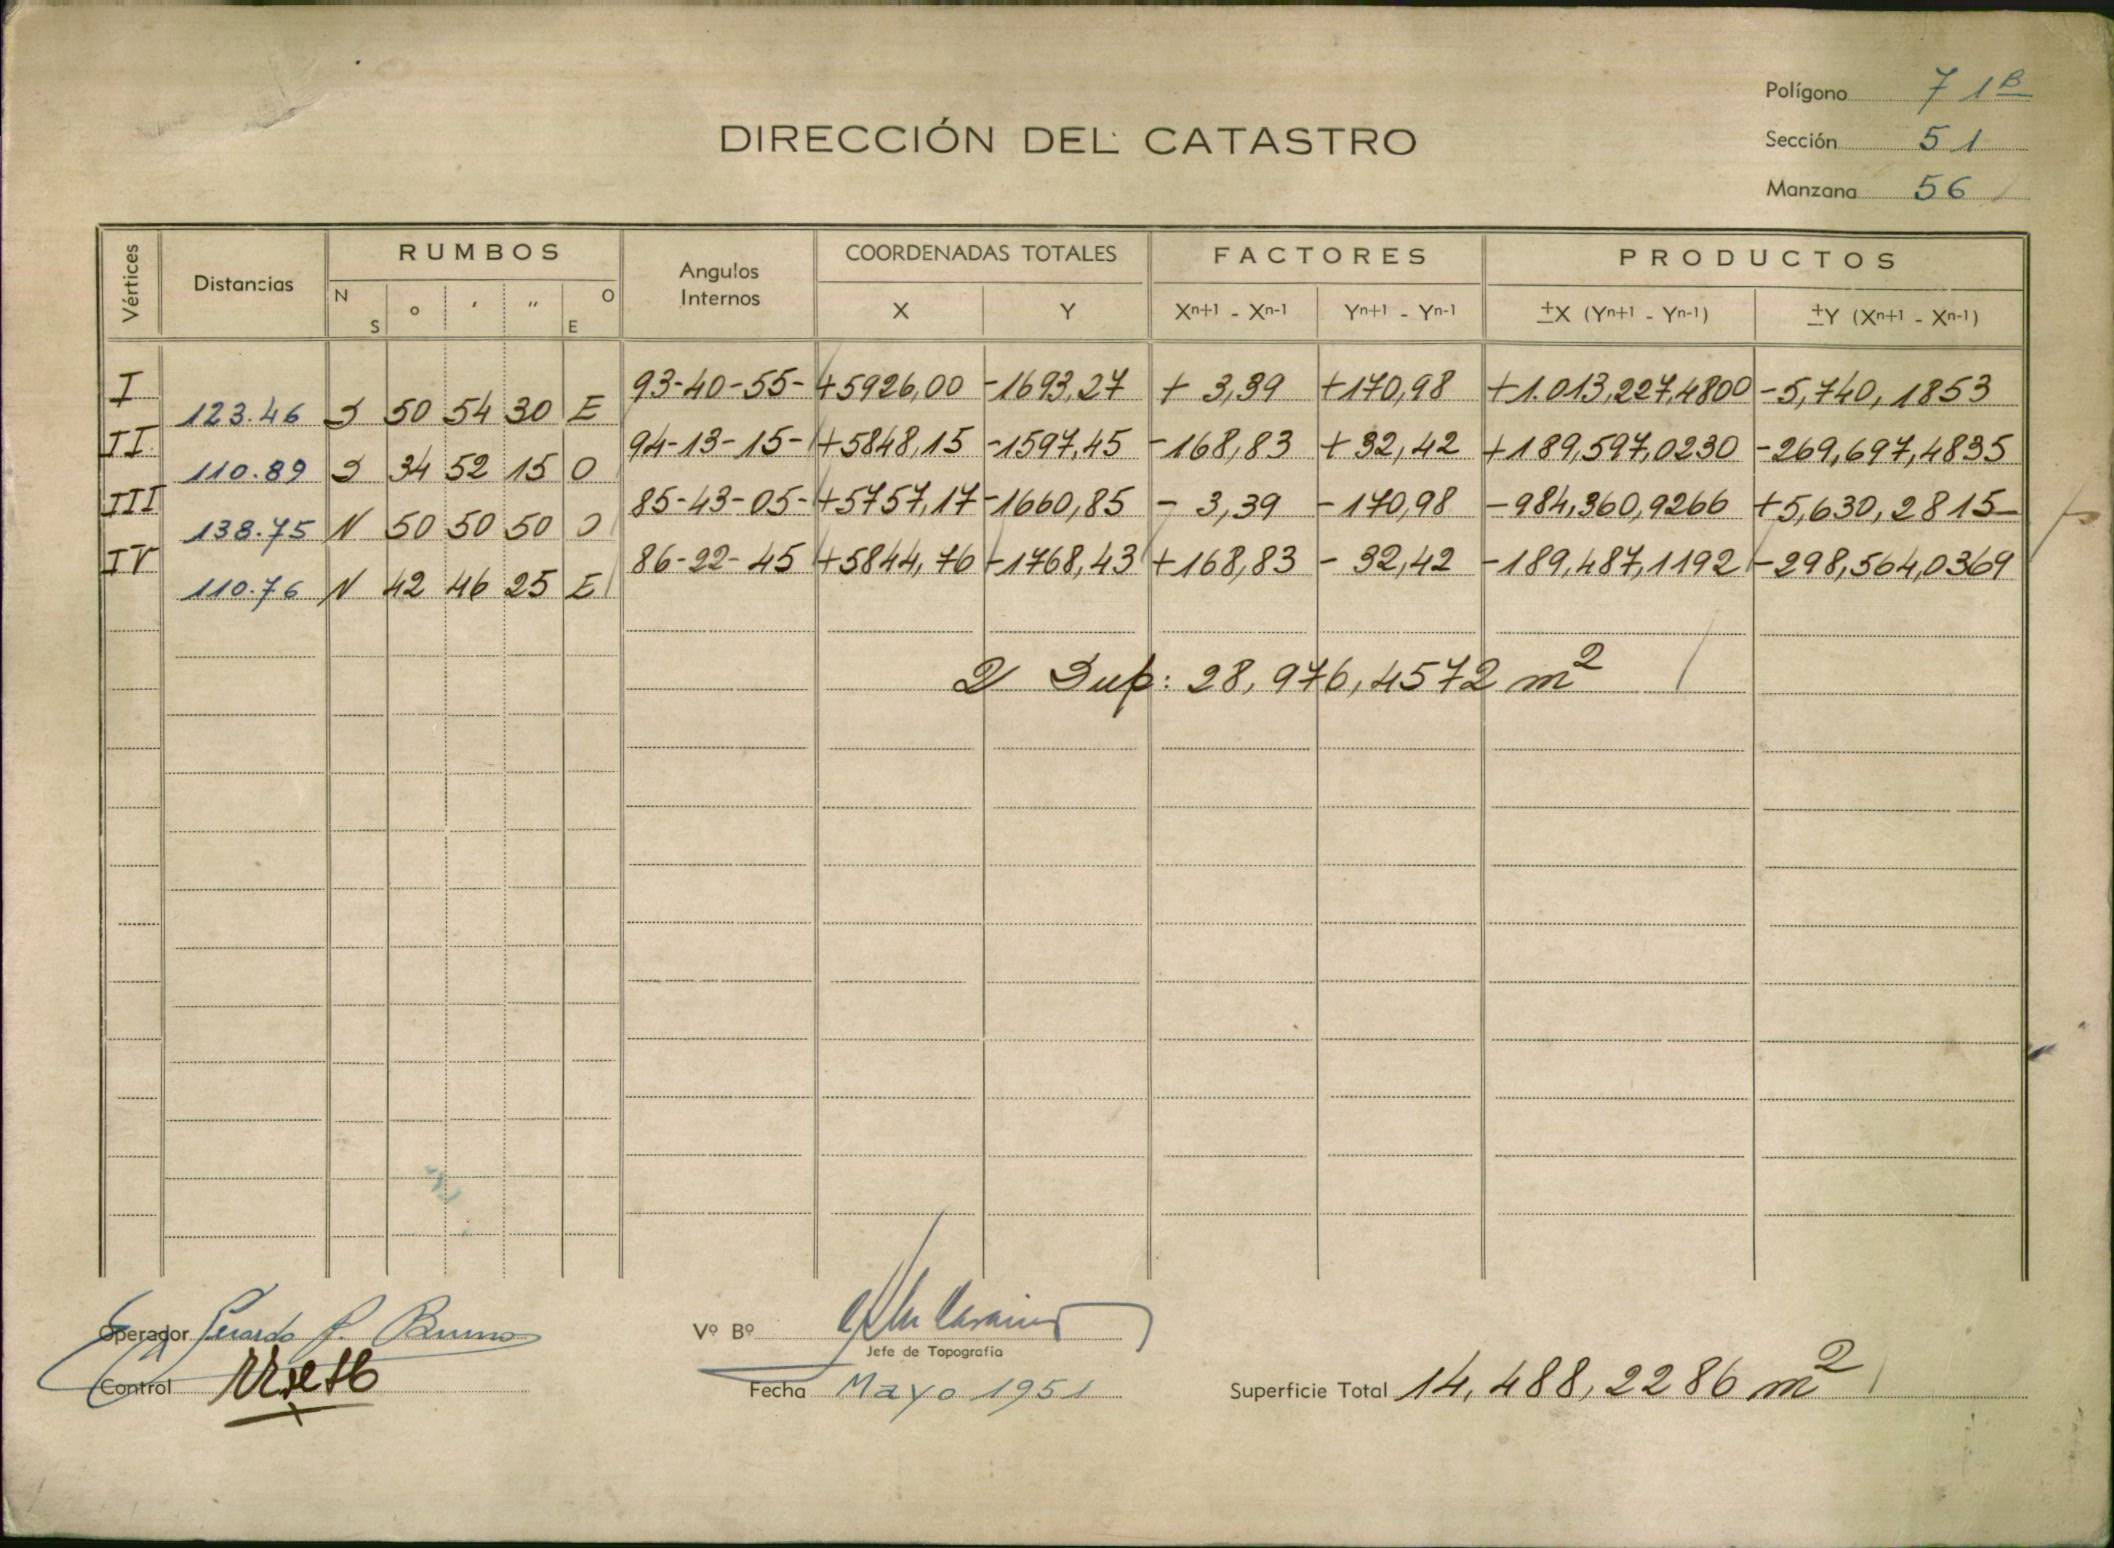 Polígono 71 B
DIRECCIÓN DEL CATASTRO
Sección 51
Manzana 56
Vértices Distancias RUMBOS Angulos Internos COORDENADAS TOTALES FACTORES PRODUCTOS
N S ° ' " O E X Y Xn+1 - Xn-1 Yn+1 - Yn-1 ±X (Yn+1 - Yn-1) ±Y (Xn+1 - Xn-1)
I 93-40-55- +5926,00 -1693,27 + 3,39 +170,98 +1.013,227,4800 -5,740,1853
123.46 S 50 54 30 E
II 94-13-15- +5848,15 -1597,45 -168,83 + 32,42 +189,597,0230 -269,697,4835
110.89 S 34 52 15 O
III 85-43-05- +5757,17 -1660,85 - 3,39 -170,98 -984,360,9266 +5,630,2815
138.75 N 50 50 50 O
IV 86-22-45 +5844,76 -1768,43 +168,83 - 32,42 -189,487,1192 -298,564,0369
110.76 N 42 46 25 E
2 Sup: 28,976,4572 m2
Operador Gerardo P. Bruno
Vº Bº
Jefe de Topografía
Control
Fecha Mayo 1951
Superficie Total 14,488,2286 m2